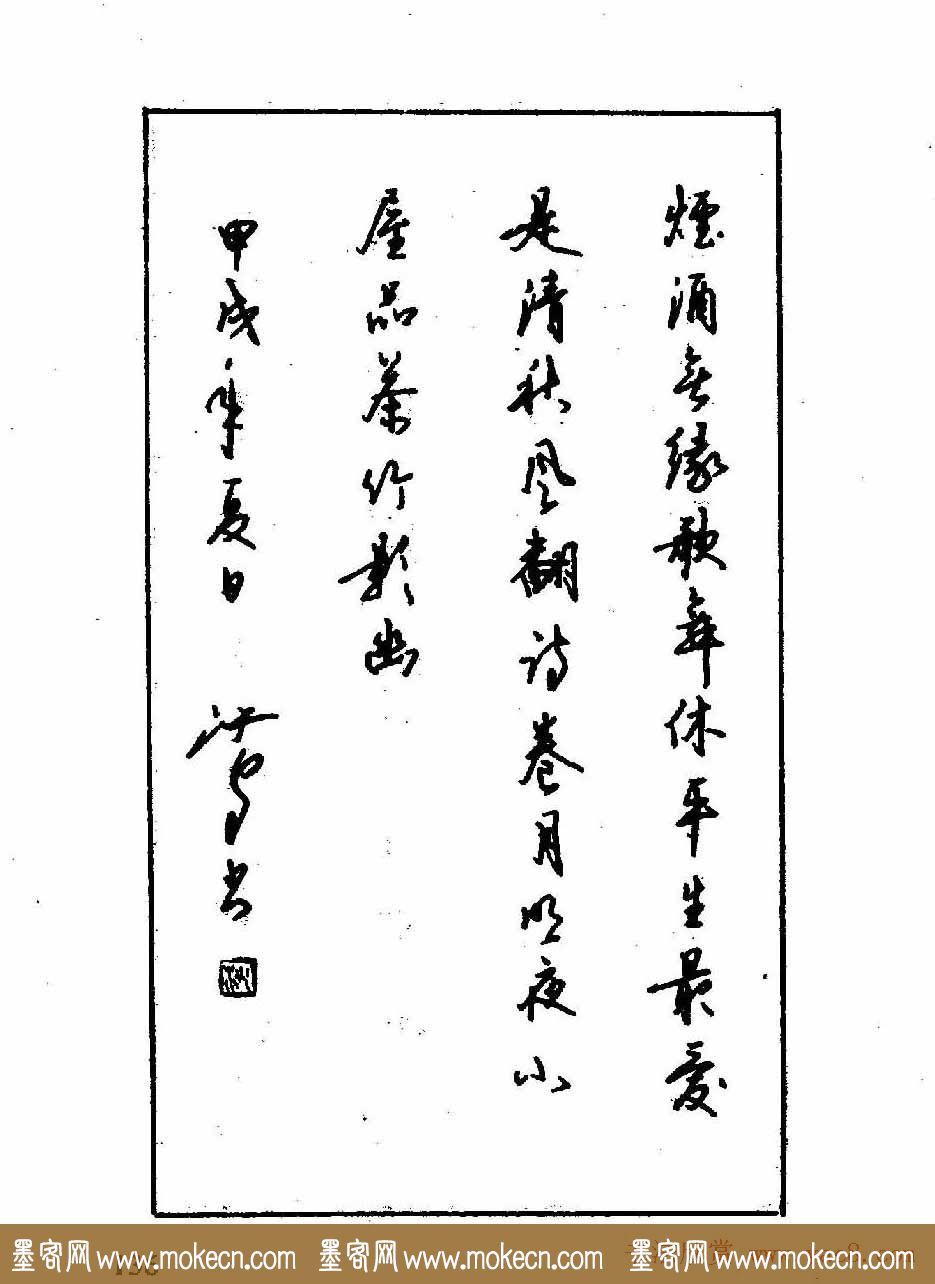 煙酒無緣歌舞休平生最愛
是清秋風翻詩卷月明夜小
屋品茶竹影幽
甲戌年夏日 书
墨客网 www.mokecn.com 墨客网 www.mokecn.com 墨客网 www.mokecn.com